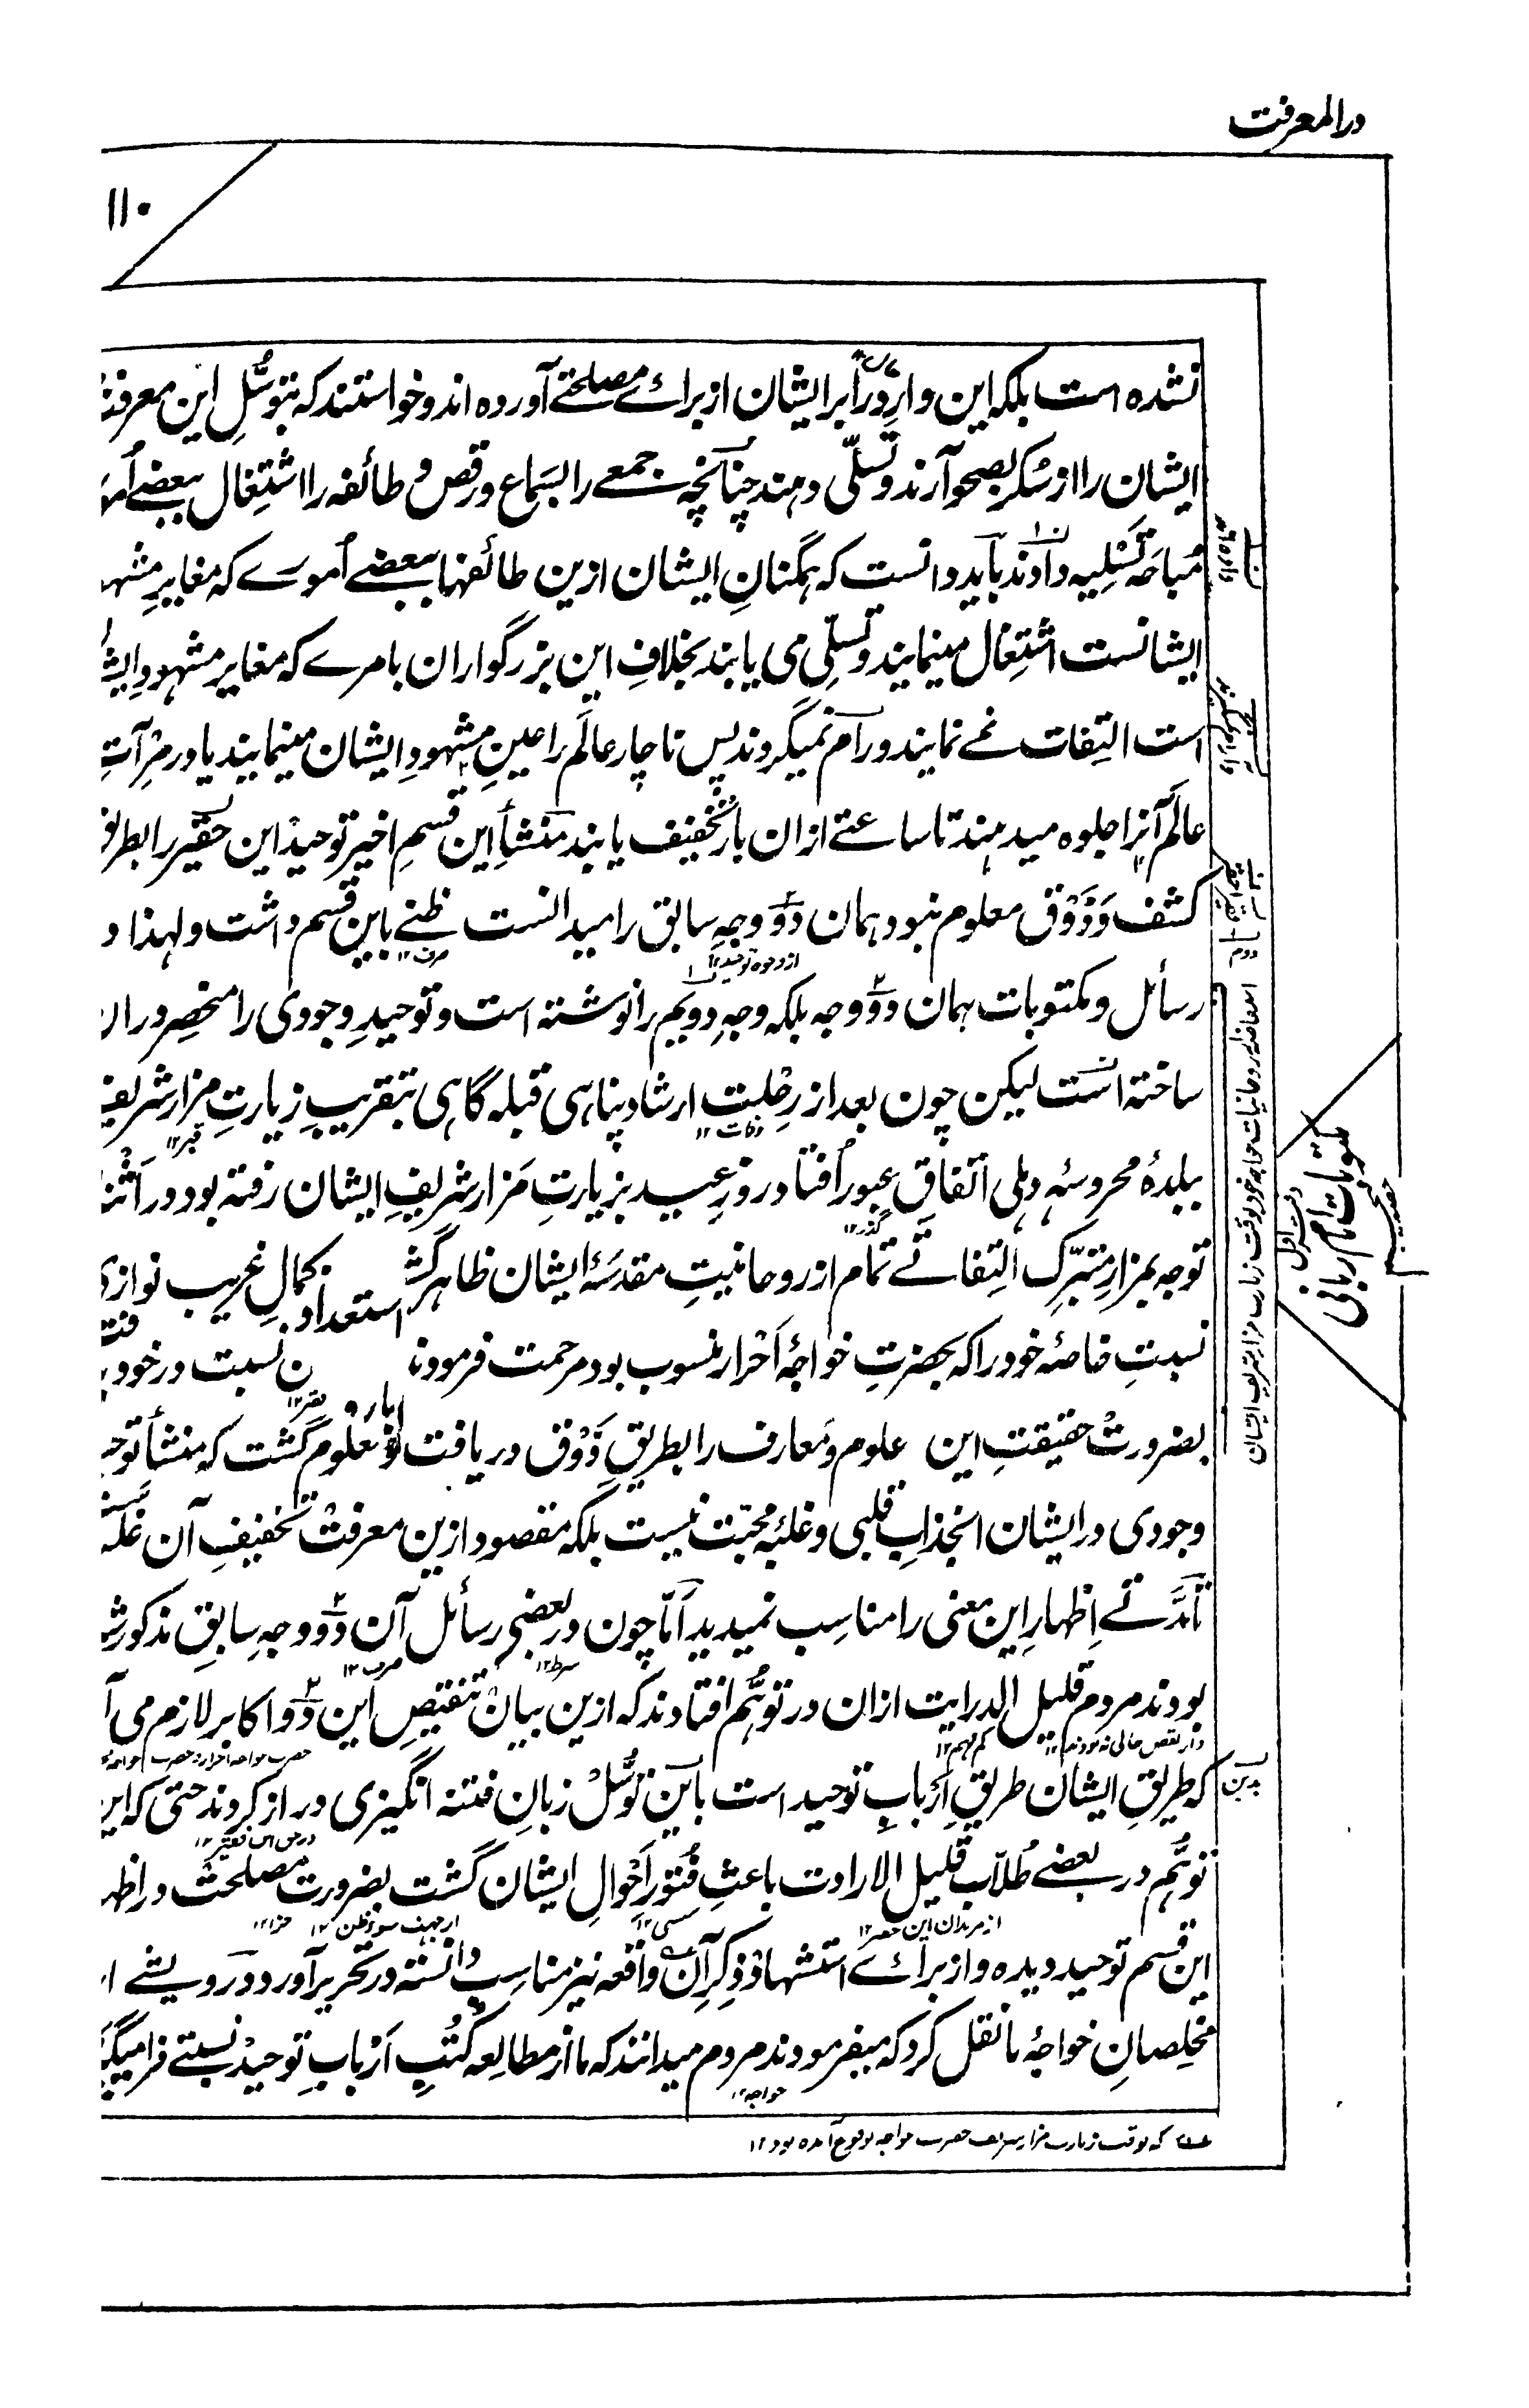 درالمعرفت
۱۱۰
نشده است بلکه این وارد را بر ایشان از برائے مصلحتے آورده اند و خواستند که بتوسُّلِ این معرفت
ایشان را از سُکر بصحو آرند و تسلّی دهند چنانچه جمعے را بسَماع و رقص و طائفه را اشتِغال ببعضے
مُباحَه تَسْلِیه دادند باید دانست که همگنانِ ایشان ازین طائفها ببعضے اُمورے که مغایرِ
ایشانست اشتِغال مینمایند و تسلّی می یابند بخلافِ این بزرگواران بامرے که مغایر مشهودِ
است التِفات نمے نمایند و رام نمیگردند پس ناچار عالَم را عینِ مشهودِ ایشان مینمایند یا در مِرْآتِ
عالَم آنرا جلوه میدهند تا ساعتے ازان بار تخفیف یابند مَنْشأِ این قسمِ اخیر توحید این حقیر را
کشف و ذَوْق معلوم نبود همان دَوْ وجهِ سابق را میدانست ظنّے باین قسم داشت و لهذا
رسائل و مکتوبات همان دو وجه بلکه وجهِ دویم را نوشته است و توحیدِ وجودی را منحصِر دران
ساخته است لیکن چون بعد از رِحْلتِ ارشاد پناهی قبله گاهی بتقریبِ زیارتِ مزار شریف
بلدهٔ محروسهٔ دهلی اتفاقِ عبور اُفتاد روزِ عید بزیارتِ مَزار شریفِ ایشان رفته بود در
توجه بمزارِ متبرّک التِفاتے تمام از روحانیتِ مقدسَهٔ ایشان ظاهر گشت کمالِ غریب نوازی
نسبتِ خاصهٔ خود را که بحضرتِ خواجهٔ اَحْرار منسوب بود مرحمت فرمودند ن نسبت در خود
بضرورتْ حقیقتِ این علوم و مَعارف را بطریقِ ذَوْق دریافت و معلوم گشت که منشأ
وجودی در ایشان انجذابِ قلبی و غلبهٔ محبّت نیست بلکه مقصود ازین معرفتْ تخفیفِ آن
تا مدَّتے اِظهارِ این معنی را مناسِب نمیدید اَمّا چون در بعضی رسائل آن دَوْ وجهِ سابق مذکور
بودند مردم قلیل الدرایت ازان در توهُّم افتادند که ازین بیانْ تنقیصِ این دو اکابر لازم می
که طریقِ ایشان طریقِ اَرْبابِ توحید است باین توسُّلْ زبانِ فتنه انگیزی دراز کردند حتی که
توهُّم در بعضے طُلاّب قلیل الارادت باعثِ فُتورِ اَحْوالِ ایشان گشت بضرورت مصلحت در
این قسم توحید دیده و از برائے استشهاد ذِکرِ آن واقعه نیز مناسِب دانسته در تحریر آورد درویشے
مخلِصانِ خواجهٔ ما نقل کرد که میفرمودند مردم میدانند که ما از مطالعه کُتُبِ اَرْبابِ توحید نسبتے
که بوقت زیارت مزار شریف حضرت خواجه بوقوع آمده بود ۱۲
مکتوبات امام ربانی